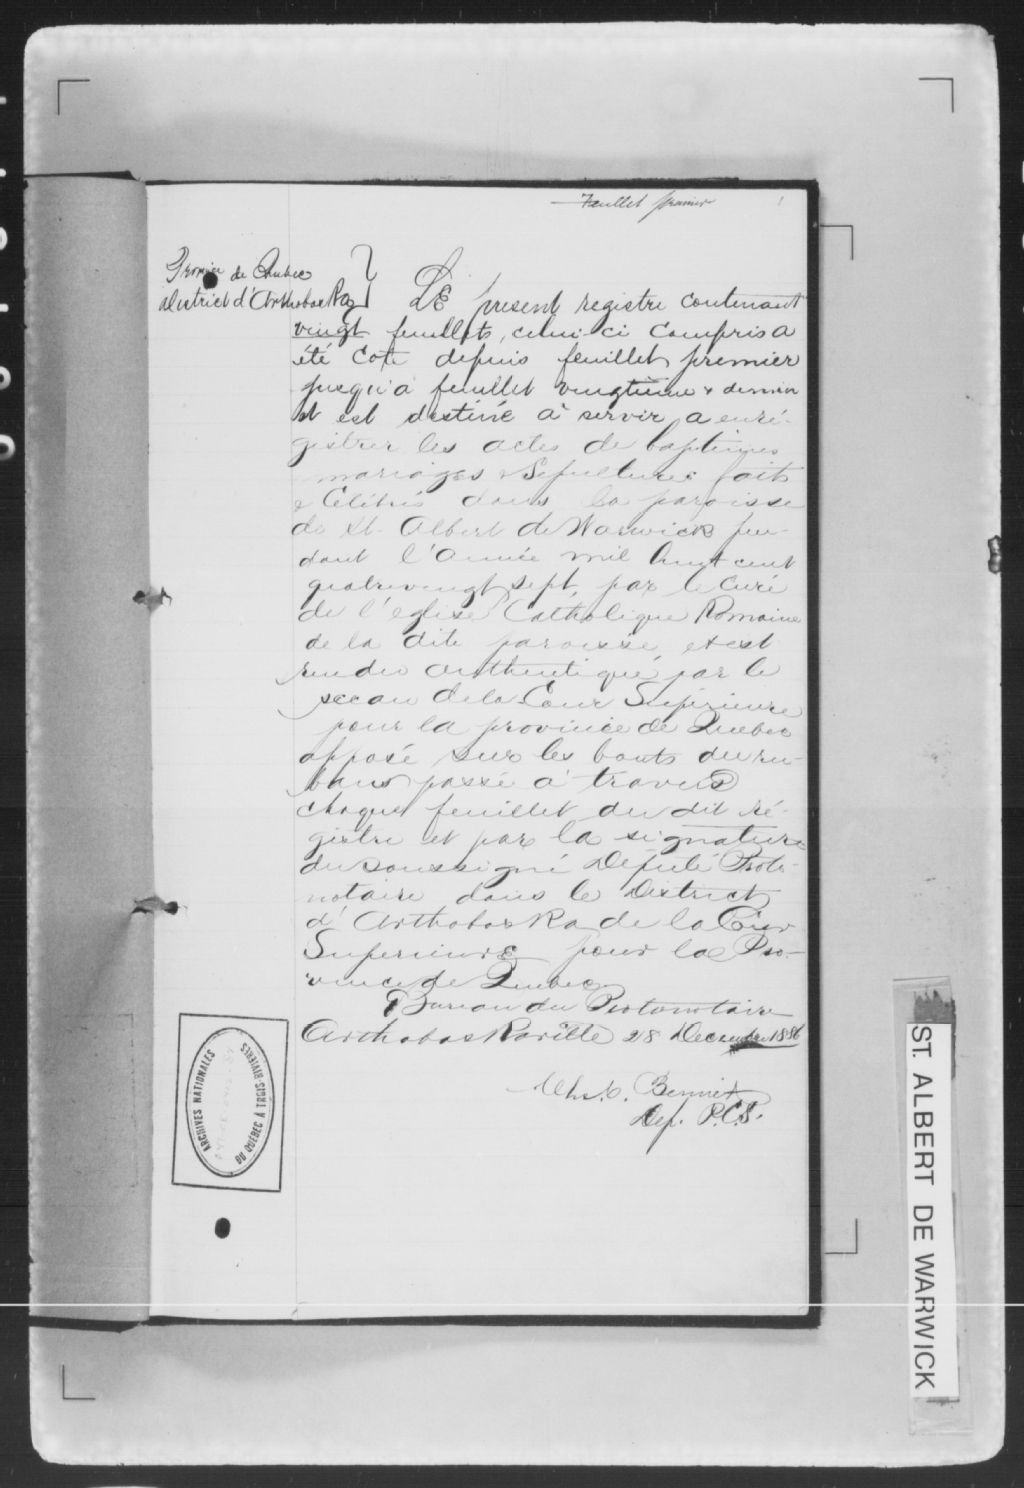 Feuillet premier
Province de Quebec
District d'Arthabaska
LE present registre contenant
vingt feuillets, celui-ci compris a
été coté depuis feuillet premier
jusqu'à feuillet vingtième & dernier
et est destiné à servir a enré-
gistrer les actes de baptêmes
mariages & Sépultures faits
& Célébrés dans la paroisse
de St. Albert de Warwick pen-
dant l'année mil huit cent
quatrevingt sept, par le Curé
de l'eglise Catholique Romaine
de la dite paroisse, et est
rendu authentique par le
sceau de la Cour Supérieure
pour la province de Quebec
apposé sur les bouts du ru-
bans passé à travers
chaque feuillet du dit ré-
gistre et par la signature
du soussigné Député Proto-
notaire dans le District
d'Arthabaska de la Cour
Superieure pour la Pro-
vince de Quebec
Bureau du Protonotaire
Arthabaskaville 28 Decembre 1886
Bennet
Dep. P.C.S.
ARCHIVES NATIONALES
DU QUÉBEC À TROIS-RIVIÈRES
ST. ALBERT DE WARWICK